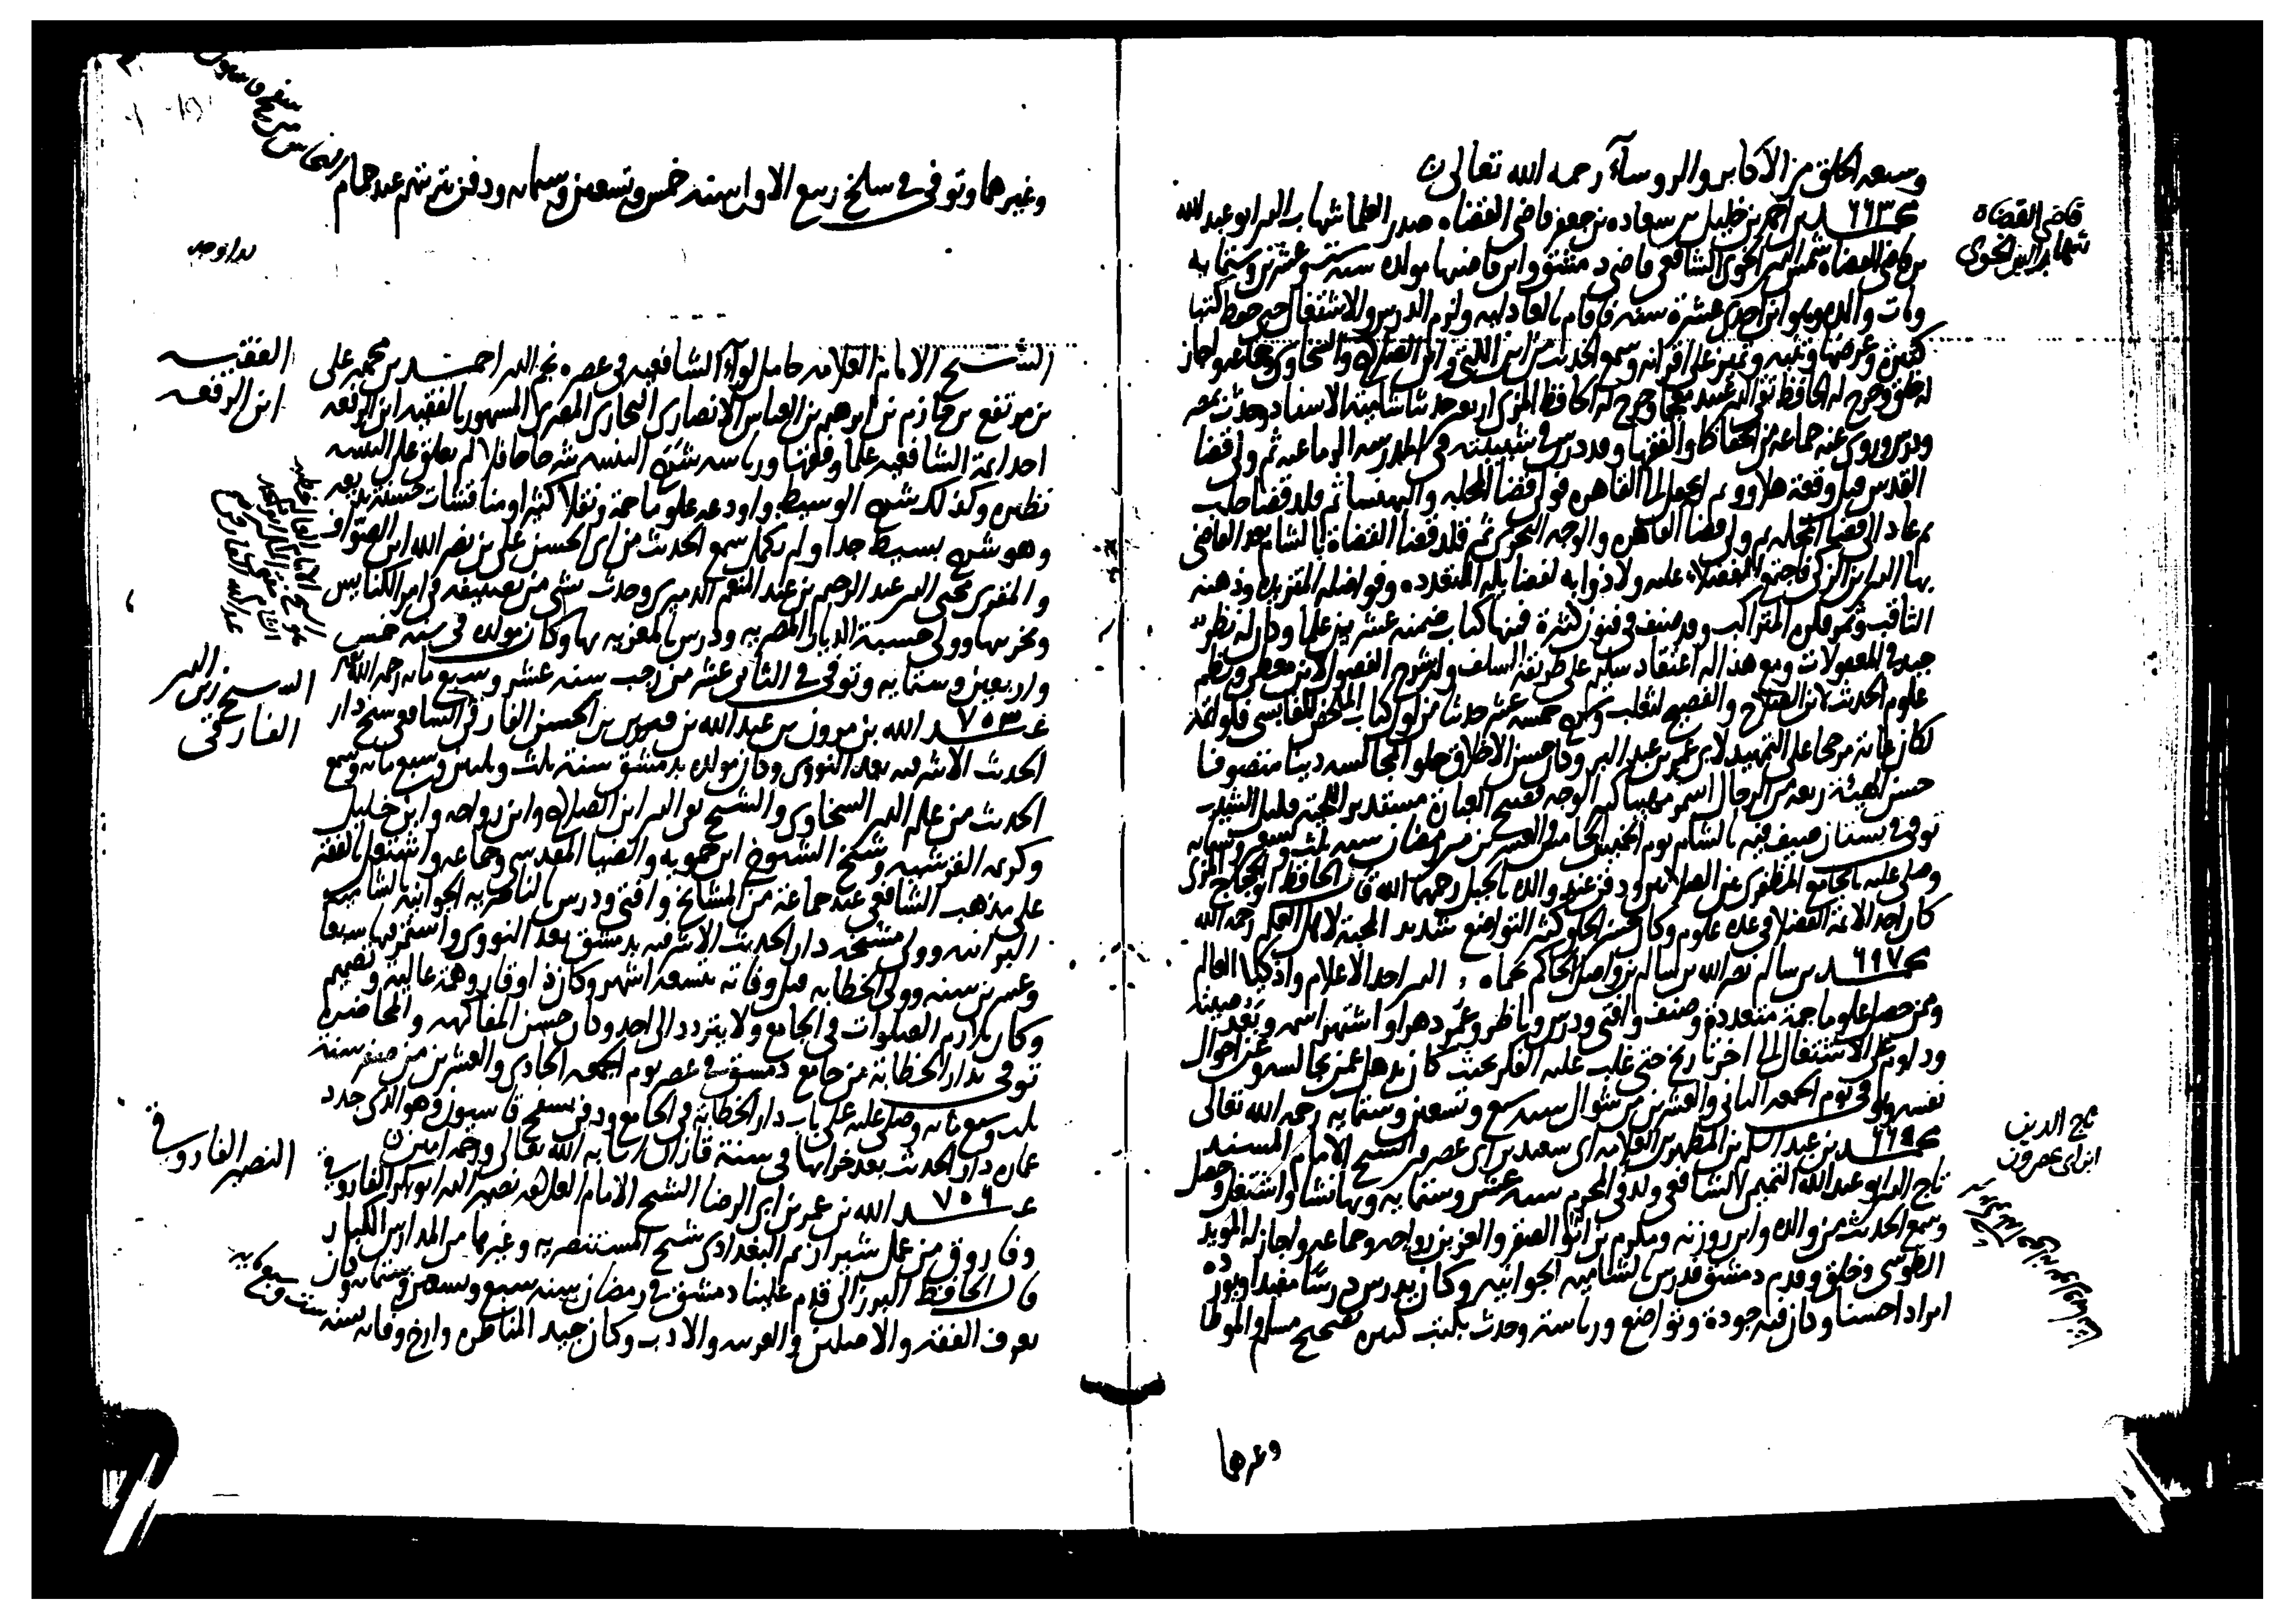 وسمعه الخلق من الأكابر والروسآء رحمه الله تعالى
قاضي القضاة
شهاب الدين الخوي
محمد بن احمد بن خليل بن سعاده بن جعفر قاضي القضاه صدر العلما شهاب الدين ابو عبد الله
بن قاضي القضاه شمس الدين الخوي الشافعي قاضي دمشق وابن قاضيها مولده سنه ست وعشرين وستمايه
ومات والده وله احدى عشرة سنه فاقام بالعادليه ولزم الدرس والاشتغال حتى حفظ كتبا
كثيرة وعرضها وتنبه وتميز على اقرانه وسمع الحديث من ابن اللتي وابن الصلاح والسخاوي وجماعه واجاز
له خلق وخرج له الحافظ تقي الدين عبيد معجما وخرج له الحافظ المزي اربعين حديثا متباينة الاسناد وحدث بمصر
ودمشق وروى عنه جماعه من الحفاظ والفقها وقد درس في شبيبته في المدرسه الدماغيه ثم ولي قضا
القدس قبل وقعة هلاوو ثم انجفل الى القاهره فولي قضا المحله والبهنسا ثم قلد قضا حلب
ثم عاد الى قضا المحله ثم ولي قضا القاهره والوجه البحري ثم قلد قضا القضاة بالشام بعد القاضي
بها الدين ابن الزكي فاجتمع الفضلاء عليه ولاذوا به لفضايله المتعدده وفواضله
الثاقب وقد صنف في فنون كثيرة فمنها كتاب ضمنه عشرين علما وكان له نظر
جيد في المعقولات ومع هذا له اعتقاد سليم على طريقة السلف وله شرح الفصول لابن معط ونظم
علوم الحديث لابن الصلاح والفصيح لثعلب وشرح خمسه عشر حديثا من اول كتاب الملخص للقابسي فلو تم
لكان مرجحا على التمهيد لابن عبد البر وكان حسن الاخلاق حلو المجالسه دينا متصوفا
حسن الهيئة ربعه من الرجال اسمر مهيبا كبير الوجه فصيح العباره مستدير اللحية قليل الشيب
توفي في بستان صيف فيه بالشام يوم الخميس الخامس والعشرين من رمضان سنه ثلث وتسعين وستمايه
وصلي عليه بالجامع المظفري بين الصلاتين ودفن عند والده بالجبل رحمهما الله قال الحافظ ابو الحجاج المزي
كان احد الائمة الفضلا في عده علوم وكان حسن الخلق كثير التواضع شديد المحبة لاهل العلم رحمه الله
محمد بن سالم بن نصر الله بن سالم بن واصل الحاكم بحماه الدين احد الاعلام واذكيا العالم
وممن حصل علوما جمة متعددة وصنف وافتى ودرس وناظر وعمر دهرا واشتهر اسمه وبعد صيته
ودام على الاشتغال الى اخر تاريخ حتى غلب عليه الفكر بحيث كان يذهل عمن يجالسه وعن احوال
نفسه وتوفي يوم الجمعه الثاني والعشرين من شوال سنه سبع وتسعين وستمايه رحمه الله تعالى
تاج الدين
ابن ابي عصرون
محمد بن عبد السلام بن المطهر بن العلامه ابي سعد بن ابي عصرون الشيخ الامام المسند
تاج الدين ابو عبد الله التميمي الشافعي ولد في المحرم سنه عشر وستمايه وبها نشا واشتغل وحصل
وسمع الحديث من والده وابن روزبه ومكرم بن ابي الصقر والعز بن رواحه وجماعه واجاز له المويد
الطوسي وخلق وقدم دمشق فدرس بالشاميه الجوانيه وكان يدرس درسا مفيدا ويورده
ايرادا حسنا وكان فيه جودة وتواضع ورياسة وحدث بكتب كصحيح مسلم والموطا
وغيرهما
وغيرهما وتوفي في سلخ ربيع الاول سنه خمس وتسعين وستمايه ودفن بتربتهم عند حمام
النحاس
سفح قاسيون
الفقيه
ابن الرفعه
الشيخ الامام العلامه حامل لوآء الشافعيه في عصره نجم الدين احمد بن محمد بن علي
بن مرتفع بن حازم بن ابرهيم بن العباس الانصاري البخاري المصري المشهور بالفقيه ابن الرفعه
احد ائمة الشافعيه علما وفقها ورياسه شرح التنبيه شرحا حافلا لم يعلق على التنبيه
نظيره وكذلك شرح الوسيط واودعه علوما جمة ونقلا كثيرا ومناقشات حسنه بديعه
وهو شرح بسيط جدا ولم يكمل سمع الحديث من ابي الحسن علي بن نصر الله ابن الصواف
والمقري محيي الدين عبد الرحيم بن عبد المنعم الدميري وحدث بشي من تصنيفه في امر الكنايس
وتخريبها وولي حسبة الديار المصريه ودرس بالمعزيه بها وكان مولده في سنه خمس
واربعين وستمايه وتوفي في الثاني عشر من رجب سنه عشر وسبع مايه رحمه الله
الشيخ زين الدين
الفارقي
٧٠٣ عبد الله بن مروان بن عبد الله بن فيروز بن الحسن الفارقي الشافعي شيخ دار
الحديث الاشرفيه بعد النووي وكان مولده بدمشق سنة ثلث وثلثين وسبع مايه وسمع
الحديث من علم الدين السخاوي والشيخ تقي الدين ابن الصلاح وابن رواحه وابن خليل
وكريمه القرشيه وشيخ الشيوخ ابن حمويه والضيا المقدسي وجماعه واشتغل بالفقه
على مذهب الشافعي عند جماعة من المشايخ وافتى ودرس بالناصريه الجوانيه بالشاميه
البرانيه وولي مشيخه دار الحديث الاشرفيه بدمشق بعد النووي واستمر بها سبعا
وعشرين سنه وولي الخطابه قبل وفاته بتسعة اشهر وكان ذا وقار وهمة عالية وتصميم
وكان يلازم الصلوات في الجامع ولا يتردد الى احد وكان حسن المفاكهه والمحاضره
توفي بدار الخطابة من جامع دمشق في عصر يوم الجمعه الحادي والعشرين من صفر سنة
ثلث وسبع مايه وصلي عليه على باب دار الخطابة في الجامع ودفن بسفح قاسيون وهو الذي جدد
عمارة دار الحديث بعد خرابها في سنة قازان اثابه الله تعالى ورحمه امين
النصير الفاروثي
٧٠٦ عبد الله بن عمر بن ابي الرضا الشيخ الامام العلامه نصير الدين ابو بكر الفاروثي
وفاروق من عمل شيراز ثم البغدادي شيخ المستنصريه وغيرها من المدارس الكبار
قال الحافظ البرزالي قدم علينا دمشق في رمضان سنه سبع وسبعين وستمايه وكان
يعرف الفقه والاصلين والعربيه والادب وكان جيد المناظره وارخ وفاته سنه ست وسبع مايه